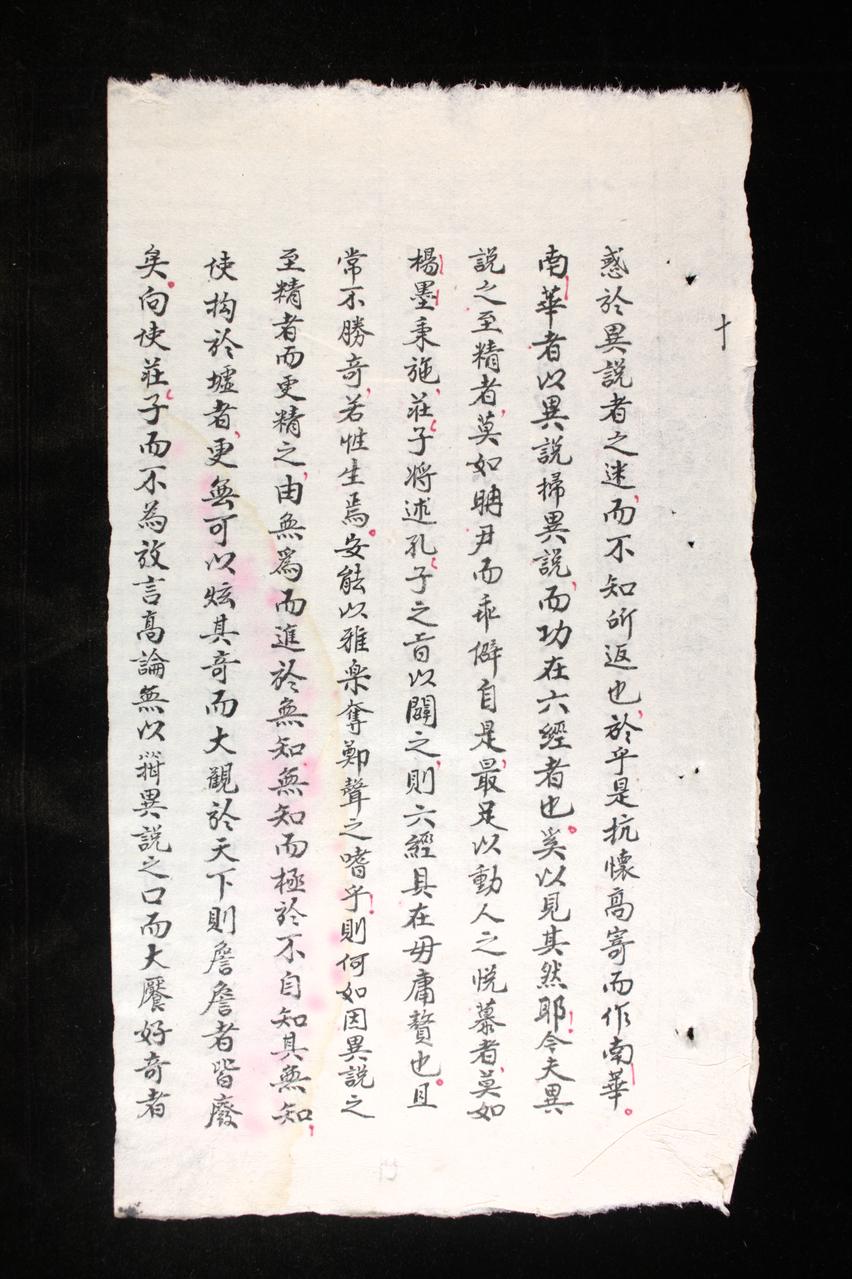 十
惑於異說者之迷，而不知所返也，於乎是抗懷高寄而作南華。
南華者以異說掃異說，而功在六經者也。奚以見其然耶，今夫異
說之至精者，莫如聃尹而乖僻自是，最足以動人之悅慕者，莫如
楊墨秉施，莊子將述孔子之旨以闢之，則六經具在毋庸贅也。且
常不勝奇，若性生焉。安能以雅樂奪鄭聲之嗜乎，則何如因異說之
至精者而更精之，由無為而進於無知無知而極於不自知其無知，
使拘於墟者，更無可以炫其奇而大觀於天下則詹詹者皆廢
矣。向使莊子而不為放言高論無以箝異說之口而大饜好奇者